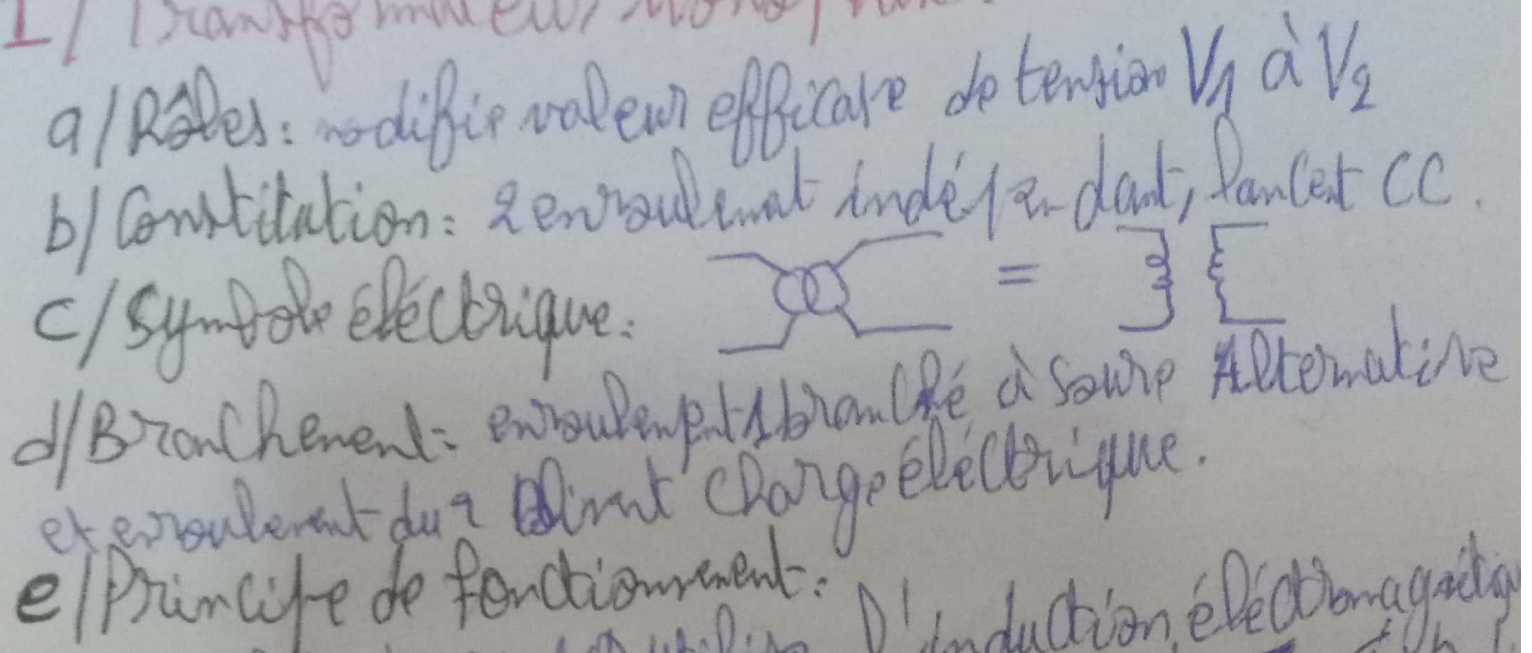 I/ Transformateur monophas
a/ Rôles: modifie valeur efficace de tension V1 à V2
b/ Constitution: 2 enroulemnat indépendant, CC.
c/ Symbole éléctrique: =
d/ Branchement: enroulement 1 branché à source Alternative
et enroulement du 2 aliment charge éléctrique.
e/ Principe de fonctionnement:
l'induction éléctromagnétiqu